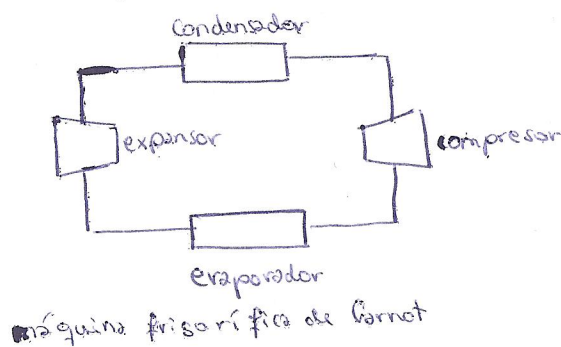 Condensador
expansor
compresor
evaporador
máquina frigorífica de Carnot